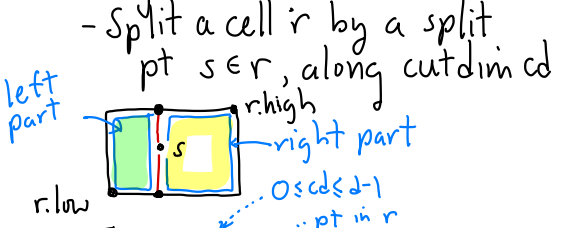 - Split a cell r by a split
pt s ∈ r, along cutdim cd
left
part
r.high
s
right part
r.low
0 ≤ cd ≤ d-1
pt in r